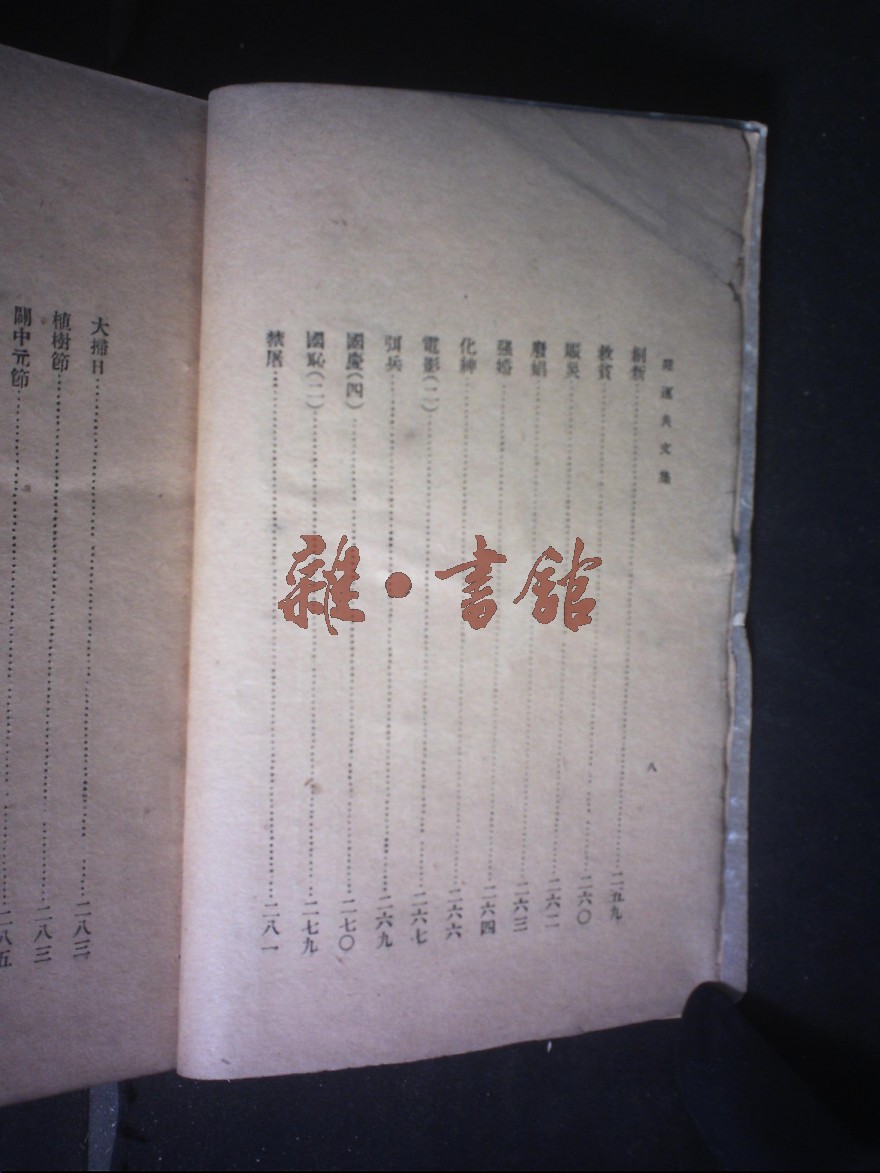 運夫文集
八
創新……二五九
救貧……二六〇
賑災……二六二
廢娼……二六三
強婚……二六四
化神……二六六
電影(二)……二六七
弭兵……二六九
國慶(四)……二七〇
國恥(二)……二七九
禁屠……二八一
大掃日……二八三
植樹節……二八三
關中元節……二八五
雜·書館